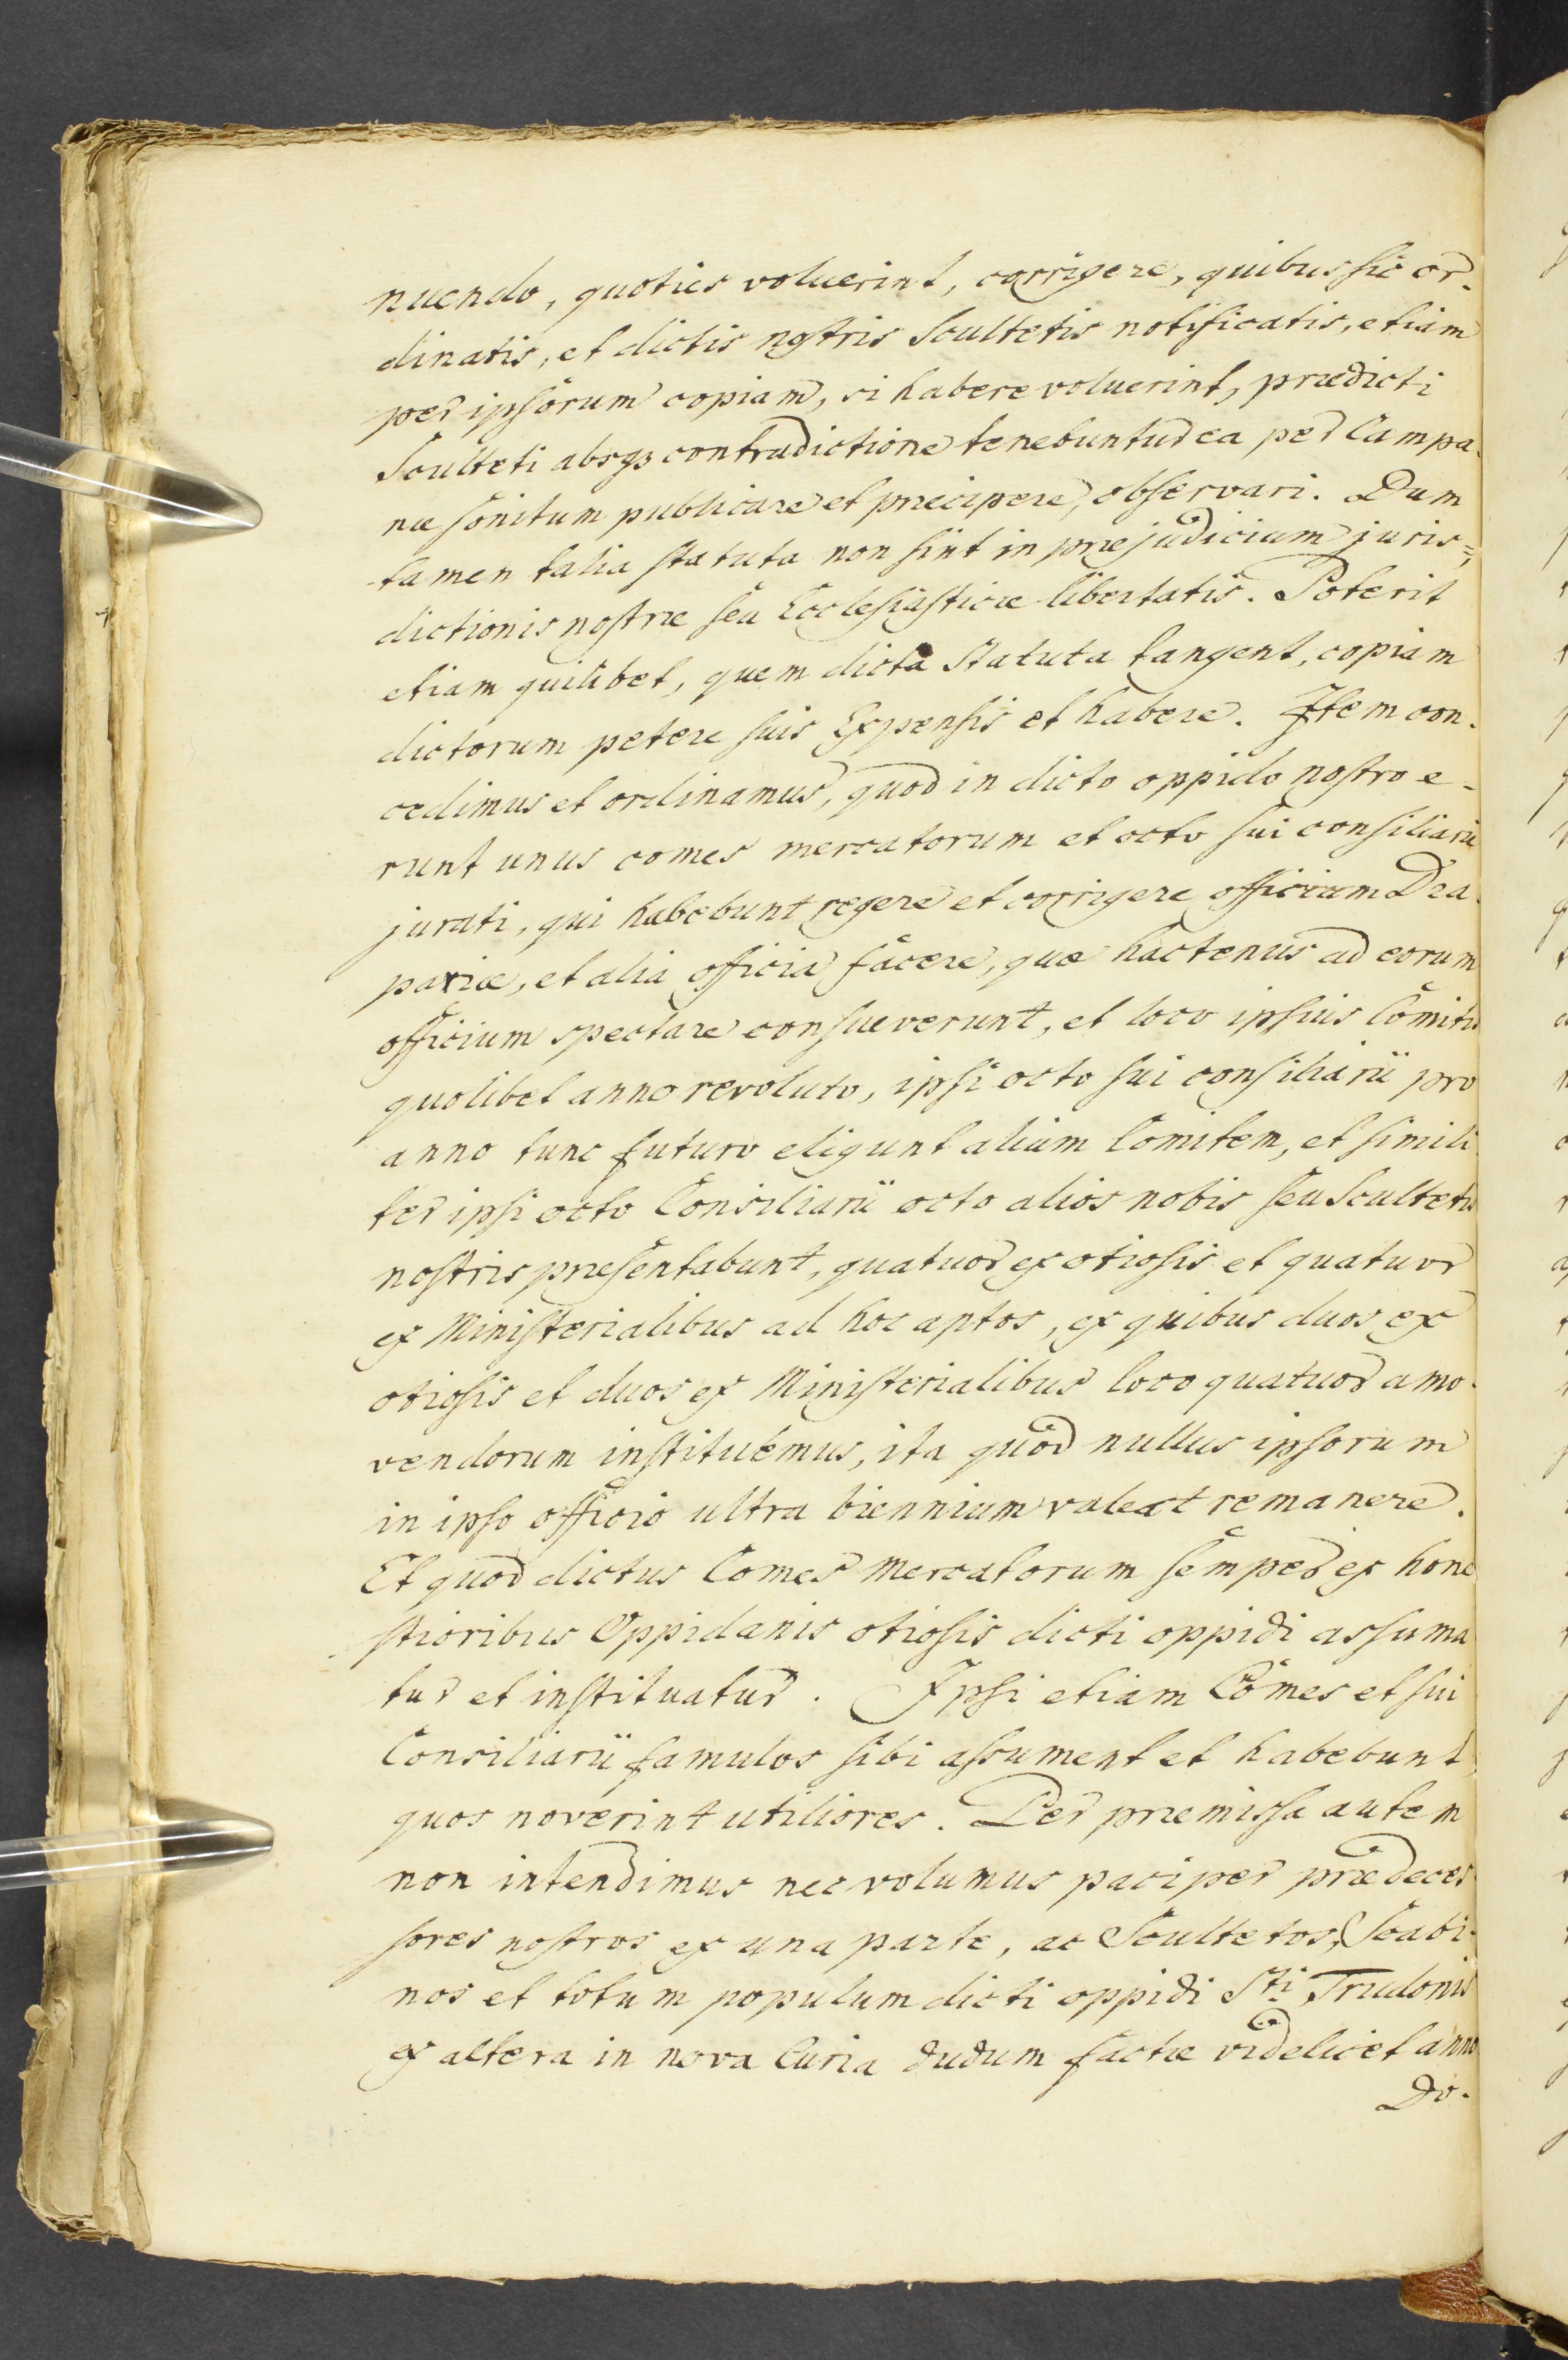 nuendo, quoties voluerint, corrigere, quibus sic or-
dinatis, et dictis nostris Scultetis notificatis, etiam
per ipsorum copiam, si habere voluerint, prædicti
Sculteti absqz contradictione tenebuntur ea per Campa-
næ sonitum publicare et præcipere, observari. Dum
tamen talia statuta non sint in præjudicium juris=
dictionis nostræ seu Ecclesiasticæ libertatis. Poterit
etiam quilibet, quem dicta Statuta tangent, copiam
dictorum petere suis Expensis et habere. Item con-
cedimus et ordinamus, quod in dicto oppido nostro e-
runt unus comes mercatorum et octo sui consiliarii
jurati, qui habebunt regere et corrigere officium Dra-
pariæ, et alia officia facere, quæ hactenus ad eorum
officium spectare consueverunt, et loco ipsius Comitis
quolibet anno revoluto, ipsi octo sui consiliarii pro
anno tunc futuro eligunt alium Comitem, et simili
ter ipsi octo Consiliarii octo alios nobis seu Scultetis
nostris præsentabunt, quatuor ex otiosis et quatuor
ex Ministerialibus ad hoc aptos, ex quibus duos ex
otiosis et duos ex Ministerialibus loco quatuor amo-
vendorum instituemus, ita quod nullus ipsorum
in ipso officio ultra biennium valeat remanere.
Et quod dictus Comes Mercatorum semper ex hone
stioribus Oppidanis otiosis dicti oppidi assuma
tur et instituatur. Ipsi etiam Comes et sui
Consiliarii famulos sibi assument et habebunt,
quos noverint utiliores. Per præmissa autem
non intendimus nec volumus paci per prædeces-
sores nostros ex una parte, ac Scultetos, Scabi-
nos et totum populum dicti oppidi Sti Trudonis
ex altera in nova Curia dudum factæ videlicet anno
Do-